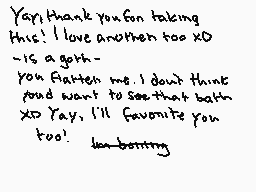 Yay, thank you for taking
this! I love another too xD
-is a goth-
you flatter me. I don't think
youd want to see that bath
xD Yay, I'll favorite you
too!
Im boring